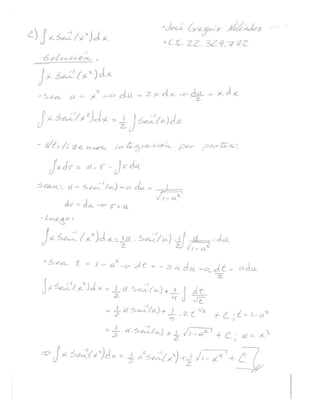 c) ∫ x sen⁻¹(x²) dx
• José Gregorio Meléndez
• C.I: 22.329.772
solución.
∫ x sen⁻¹(x²) dx
- sea u = x² → du = 2x dx → du/2 = x dx
∫ x sen⁻¹(x²) dx = 1/2 ∫ sen⁻¹(u) du
- Utilizamos integración por partes:
∫ u dv = u.v - ∫ v du
sean: u = sen⁻¹(u) → du = 1/√(1-u²)
dv = du → v = u
- Luego:
∫ x sen⁻¹(x²) dx = 1/2 u . sen⁻¹(u) - 1/2 ∫ u/√(1-u²) . du
- sea t = 1 - u² → dt = -2u du → dt/2 = u du
∫ x sen⁻¹(x²) dx = 1/2 u . sen⁻¹(u) + 1/4 ∫ dt/√t
= 1/2 u sen⁻¹(u) + 1/4 . 2 t^(1/2) + C ; t = 1 - u²
= 1/2 u . sen⁻¹(u) + 1/2 √(1-u²) + C ; u = x²
⇒ ∫ x sen⁻¹(x²) dx = 1/2 x² sen⁻¹(x²) + 1/2 √(1-x⁴) + C